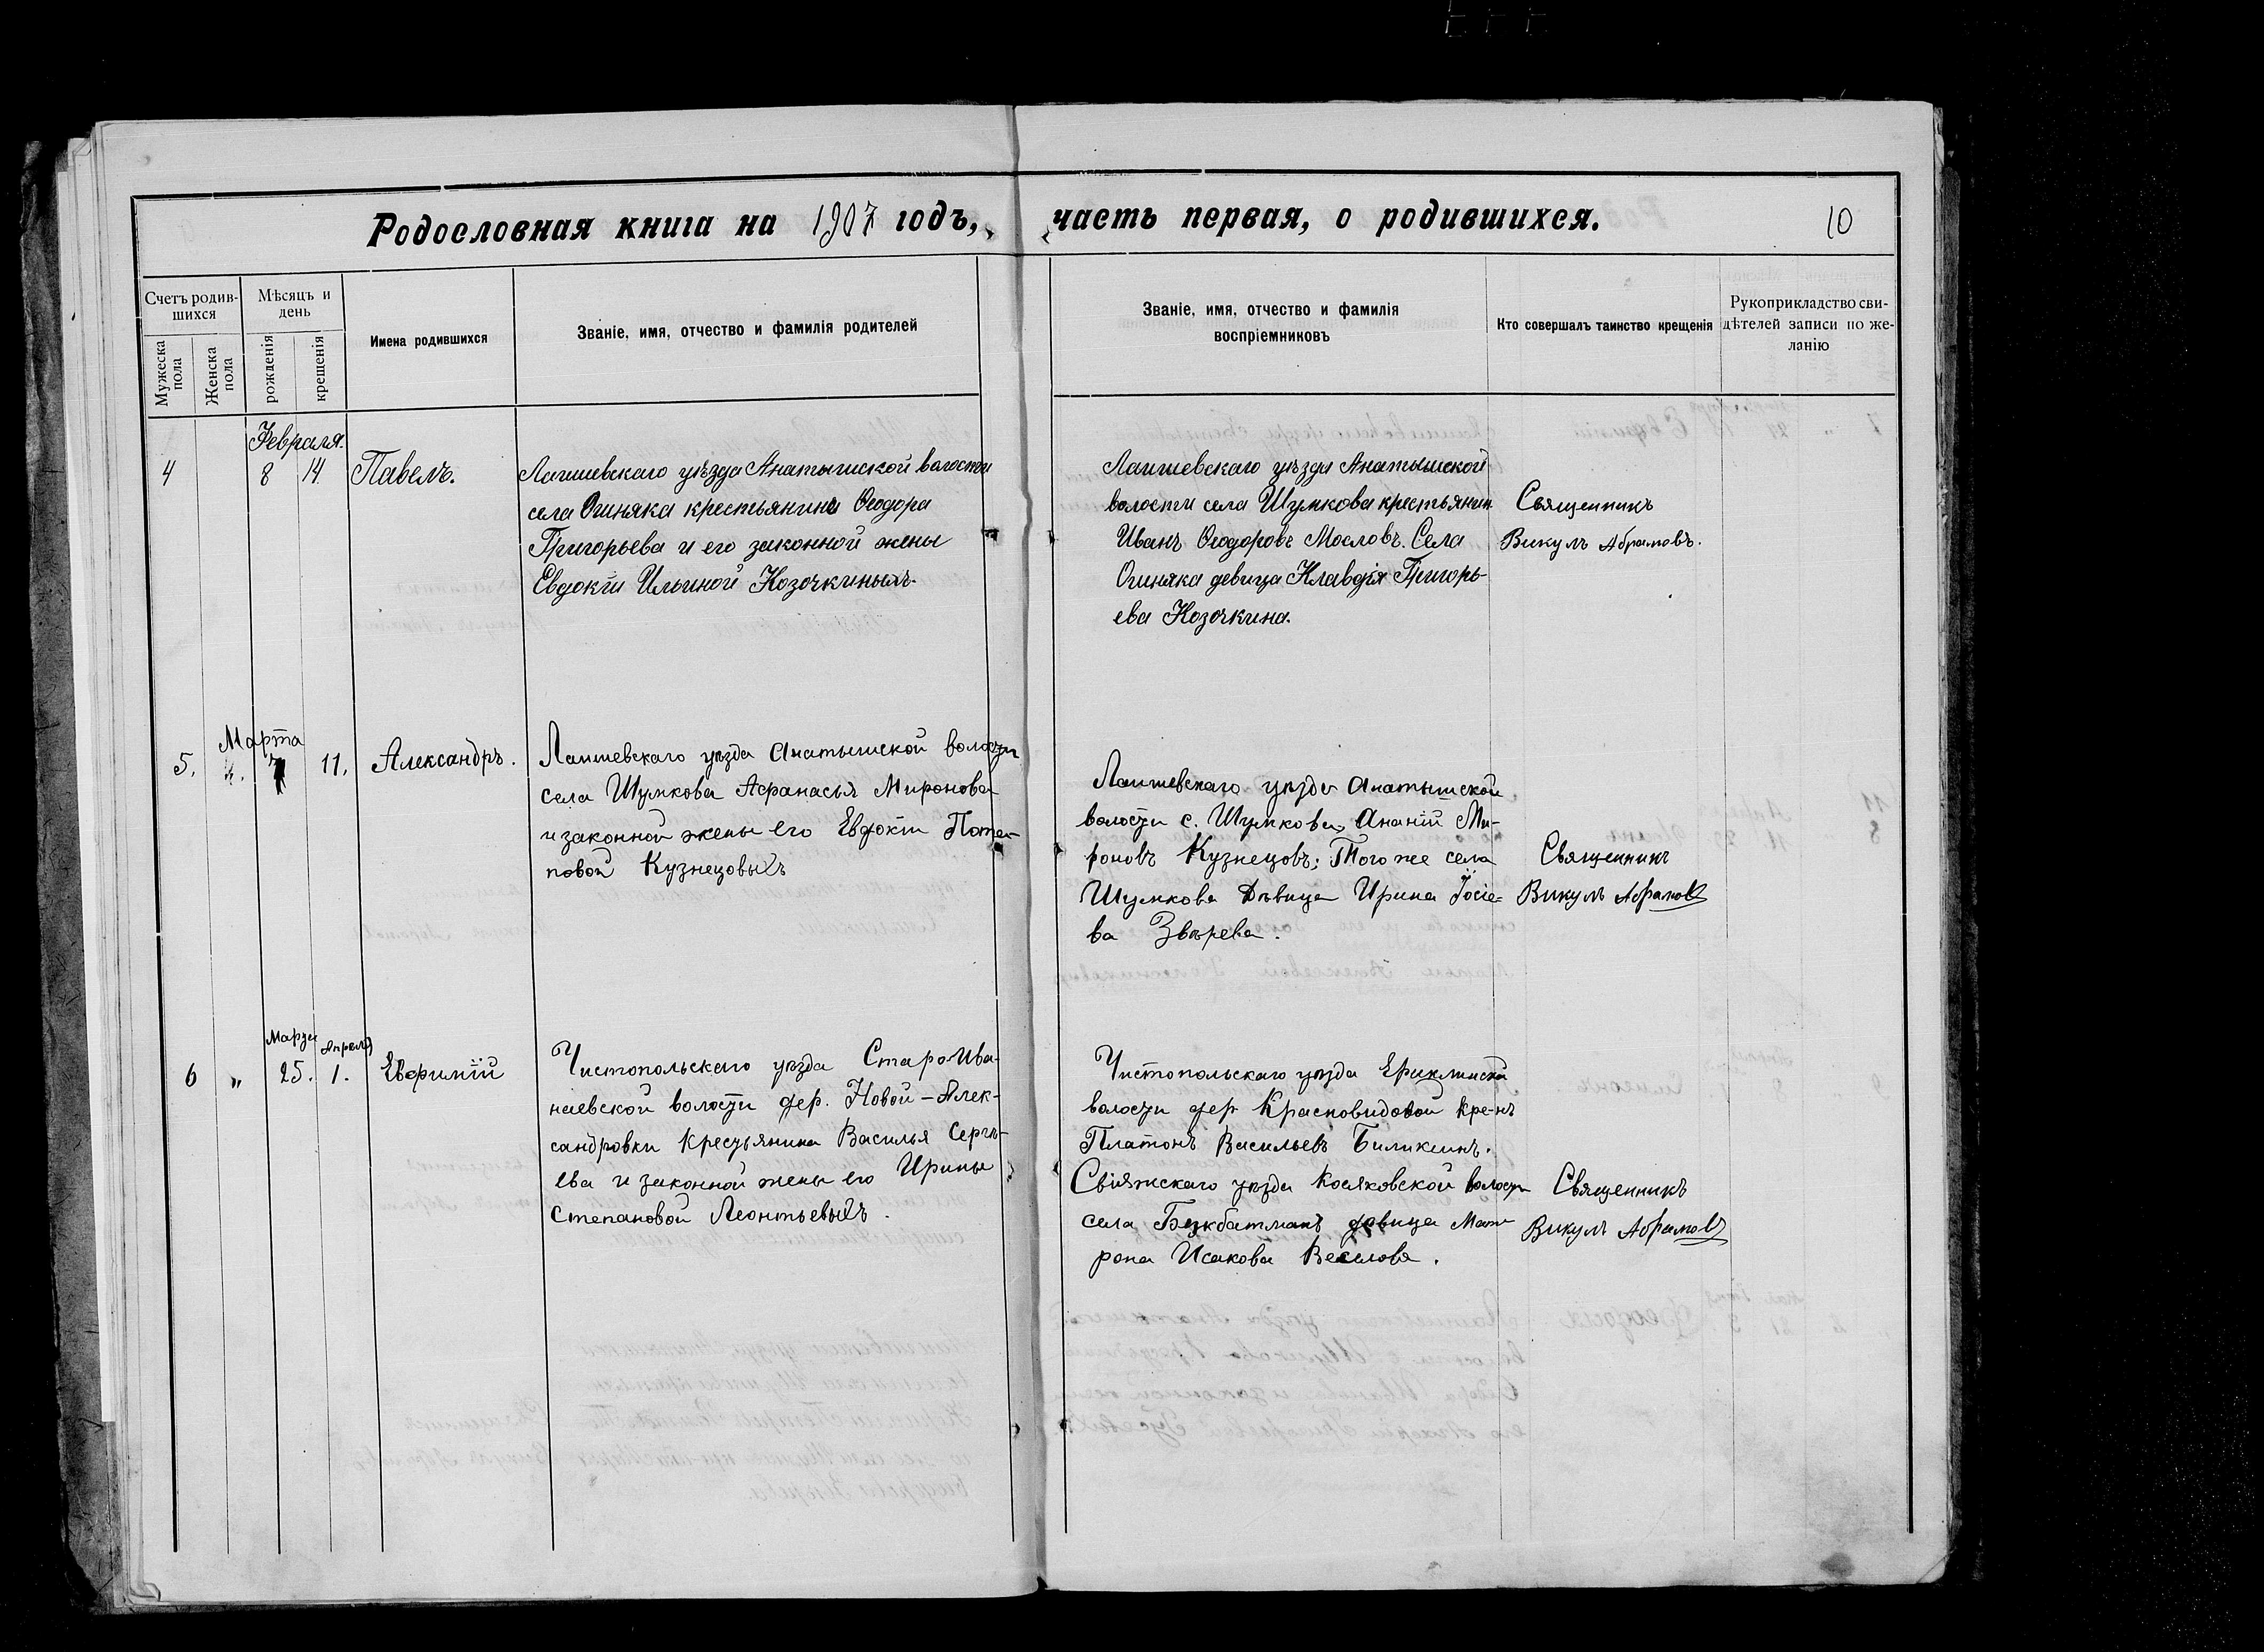 Родословная книга на 1907 годъ, часть первая, о родившихся.
10
Счетъ родив-
шихся
Мѣсяцъ и
день
Мужеска
пола
Женска
пола
рожденія
крещенія
Имена родившихся
Званіе, имя, отчество и фамилія родителей
Званіе, имя, отчество и фамилія
воспріемниковъ
Кто совершалъ таинство крещенія
Рукоприкладство сви-
дѣтелей записи по же-
ланію
Февраля.
4 8 14 Павелъ.
Лаишевскаго уѣзда Анатышской волости
села Ошняка крестьянина Ѳеодора
Григорьева и его законной жены
Евдокіи Ильиной Козочкиныхъ.
Лаишевскаго уѣзда Анатышской
волости села Шумкова крестьянин
Иванъ Ѳеодоровъ Мословъ. Села
Ошняка девица Клавдія Григорь-
ева Козочкина.
Священникъ
Викулъ Абрамовъ.
Марта
5. 7 11. Александръ.
Лаишевскаго уѣзда Анатышской волости
села Шумкова Афанасья Миронова
и законной жены его Евдокіи Пота-
повой Кузнецовыхъ
Лаишевскаго уѣзда Анатышской
волости с. Шумкова, Ананій Ми-
роновъ Кузнецовъ; Того же села
Шумкова Дѣвица Ирина Іосіе-
ва Звѣрева.
Священникъ
Викулъ Абрамовъ
Марта Апреля
6 „ 25. 1. Евфимій
Чистопольскаго уѣзда Старо Ива-
наевской волости дер. Новой-Алек-
сандровки Крестьянина Василья Сергѣ-
ева и законной жены его Ирины
Степановой Леонтьевыхъ.
Чистопольскаго уѣзда Ериклинской
волости дер. Красновидовой кре-нъ
Платонъ Васильевъ Биликинъ.
Свіяжскаго уѣзда Косяковской волости
села Бужбатманъ дѣвица Мат-
рона Исакова Веселова.
Священникъ
Викулъ Абрамовъ